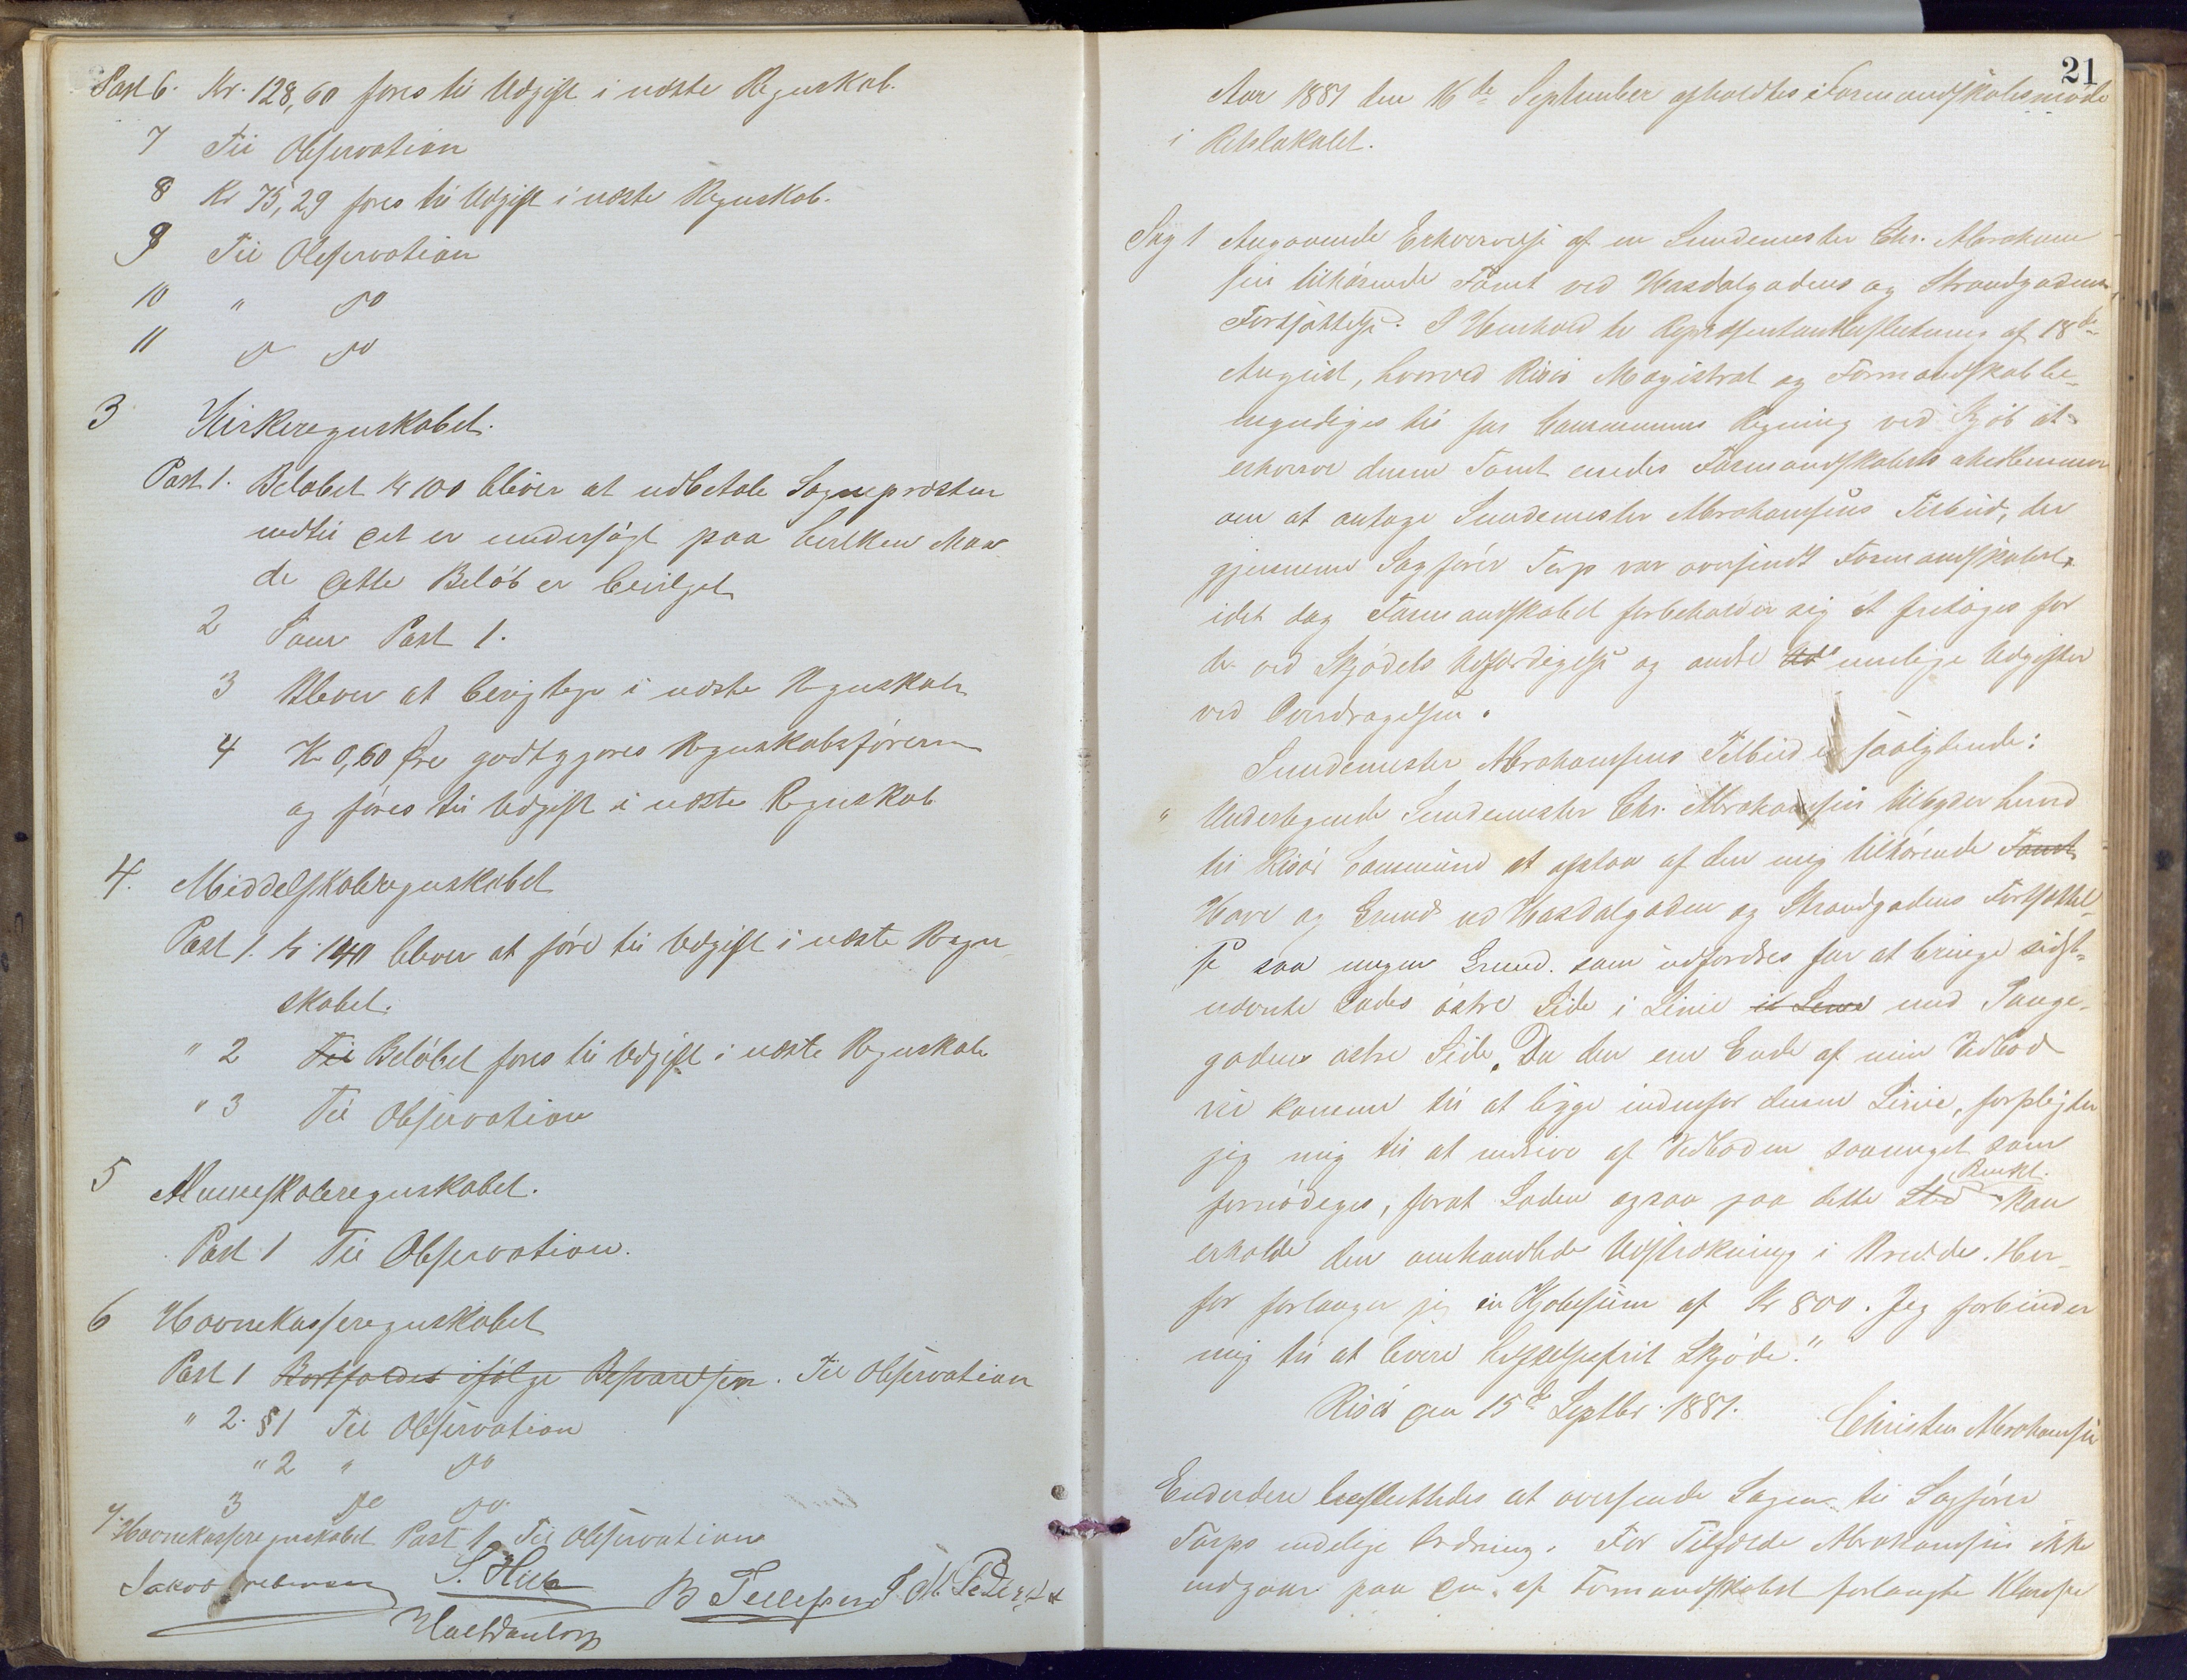 Post 6. Kr. 128,60 føres til Udgift i næste Regnskab.
7 Til Observation
8 Kr 75,29 føres til Udgift i næste Regnskab.
9 Til Observation
10 " do
11 do do
3 Kirkeregnskabet.
Post 1. Beløbet Kr 100 bliver at udbetale Sognepræsten
indtil det er undersøgt paa hvilken Maa
de dette Beløb er bevilget
2 Som Post 1.
3 Bliver at berigtige i næste Regnskab
4 Kr 0,60 Øre godtgjøres Regnskabsføreren
og føres til Udgift i næste Regnskab
4. Middelskoleregnskabet
Post 1. Kr. 140 bliver at føre til Udgift i næste Regn
skabet.
" 2 Til Beløbet føres til Udgift i næste Regnskab
" 3 Til Observation
5 Almueskoleregnskabet.
Post 1 Til Observation.
6 Havnekasseregnskabet
Post 1 Bortfaldes ifølge Besvarelsen. Til Observation
" 2. §1 Til Observation
" 2 " do
3 do do.
7. Havnekasseregnskabet Post 1 Til Observation
Jakob S. Hill B Tellefsen J. M. Pedersen
21
Aar 1881 den 16de September afholdtes Formandskabsmøde
i Retslokalet.
Sag 1 Angaaende Erhvervelse af en Lundemester Chr. Abraham
sen tilhørende Tomt ved Hasdalgadens og Strandgadens
Fortsættelse. I Henhold til Repræsentantbeslutning af 18de
August, hvorved Risør Magistrat og Formandskab be-
myndiges til for Communens Regning ved Kjøb at
erhverve denne Tomt enedes Formandskabets Medlemmer
om at antage Lundemester Abrahamsens Tilbud, der
gjennem Sagfører Tarp var oversendt Formandskabet,
idet dog Formandskabet forbeholder sig at fritages for
de ved Skjødets Udfærdigelse og andre Ud mulige Udgifter
ved Overdragelsen.
Lundemester Abrahamsens Tilbud er saalydende:
" Undertegnede Lundemester Chr. Abrahamsen tilbyder herved
til Risør Commune at afstaa af den mig tilhørende Tomt
Have og Grund ved Hasdalgaden og Strandgadens Fortsættel-
se saa megen Grund som udfordres for at bringe sidst-
nævnte Gades østre Side i Linie med Tange-
gadens østre Side. Da den ene Ende af min Vedbod
vil komme til at ligge indenfor denne Linie, forpligter
jeg mig til at nedrive af Vedboden saameget som
fornødiges, forat Gaden ogsaa paa dette Sted Punkt kan
erholde den omhandlede Udstrækning i Bredde. Her-
for forlanger jeg en Kjøbesum af Kr 800. Jeg forbinder
mig til at levere heftelsefrit Skjøde."
Risør den 15de Septbr. 1881. Christen Abrahamsen
Endvidere besluttedes at oversende Sagen til Sagfører
Tarps endelige Ordning. For Tilfælde Abrahamsen ikke
indgaar paa den af Formandskabet forlangte Klausul